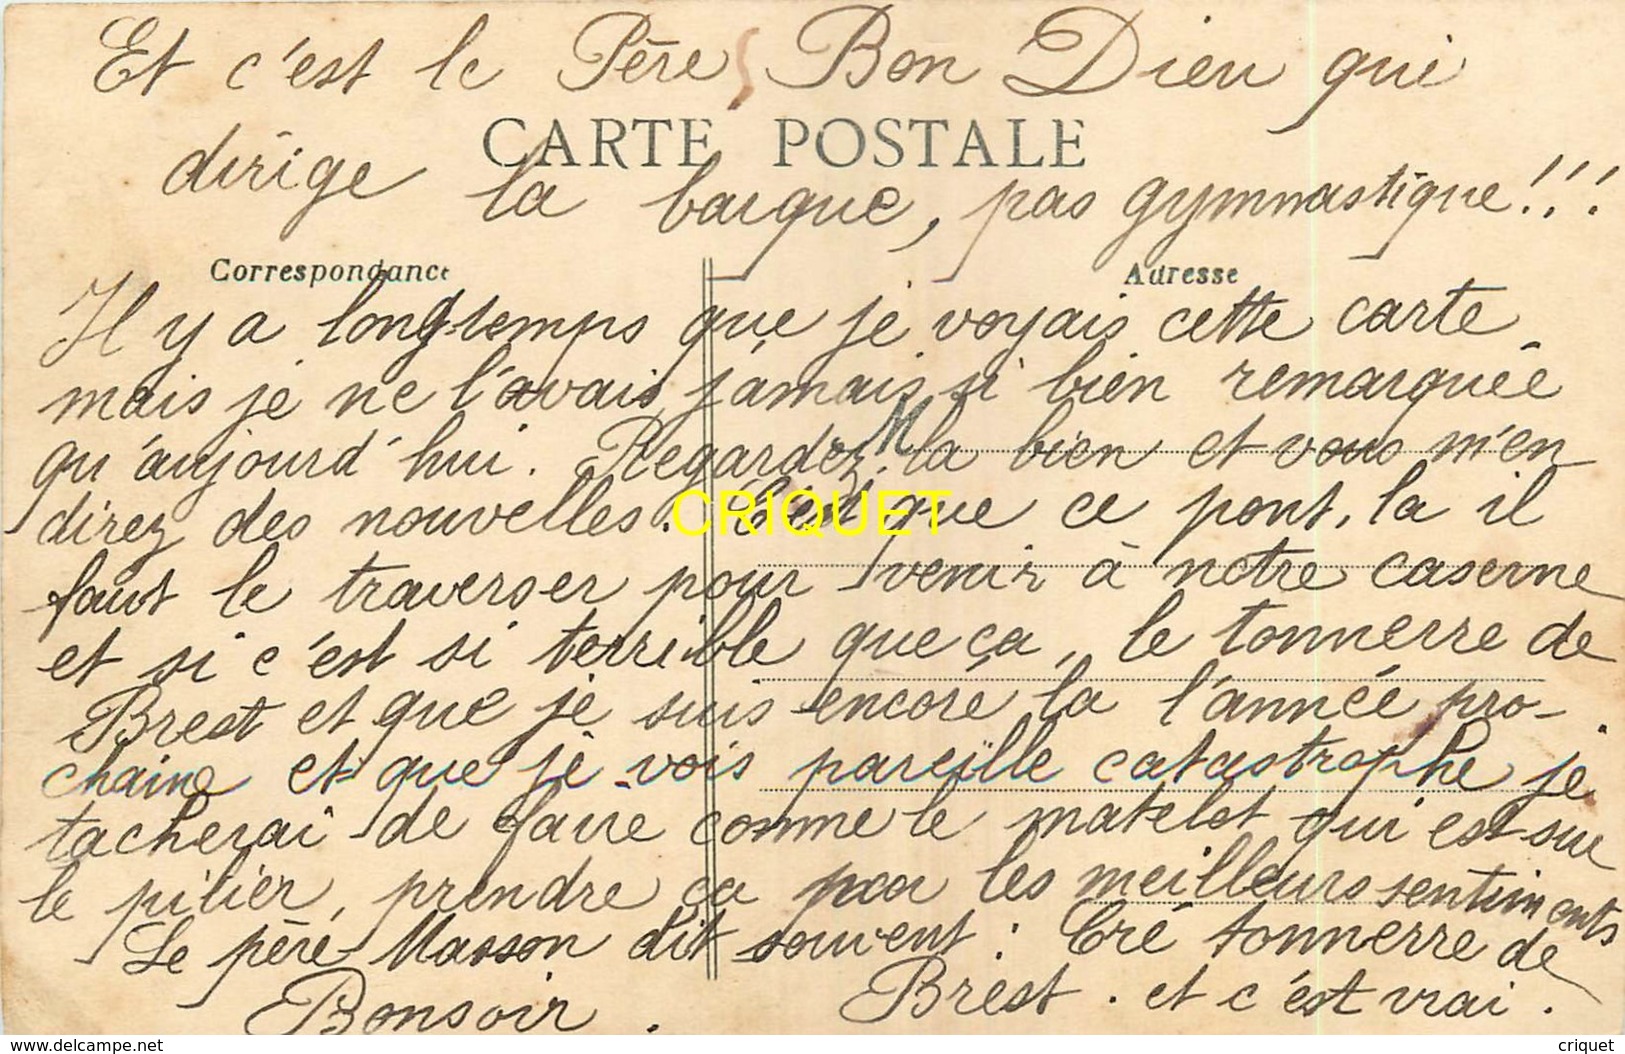 Et c'est le Père Bon Dieu qui
CARTE POSTALE
dirige la barque, pas gymnastique!!!
Correspondance
Adresse
Il y a longtemps que je voyais cette carte
mais je ne l'avais jamais si bien remarquée
qu'aujourd'hui. Regardez la bien et vous m'en
direz des nouvelles. C'est que ce pont, la il
CRIQUET
faut le traverser pour venir à notre caserne
et si c'est si terrible que ça, le tonnerre de
Brest et que je suis encore la l'année pro-
chaine et que je vois pareille catastrophe je
tacherai de faire comme le matelot qui est sur
le pilier, prendre ça par les meilleurs sentiments
Le père Masson dit souvent : Cré tonnerre de
Brest. et c'est vrai.
Bonsoir.
www.delcampe.net
criquet